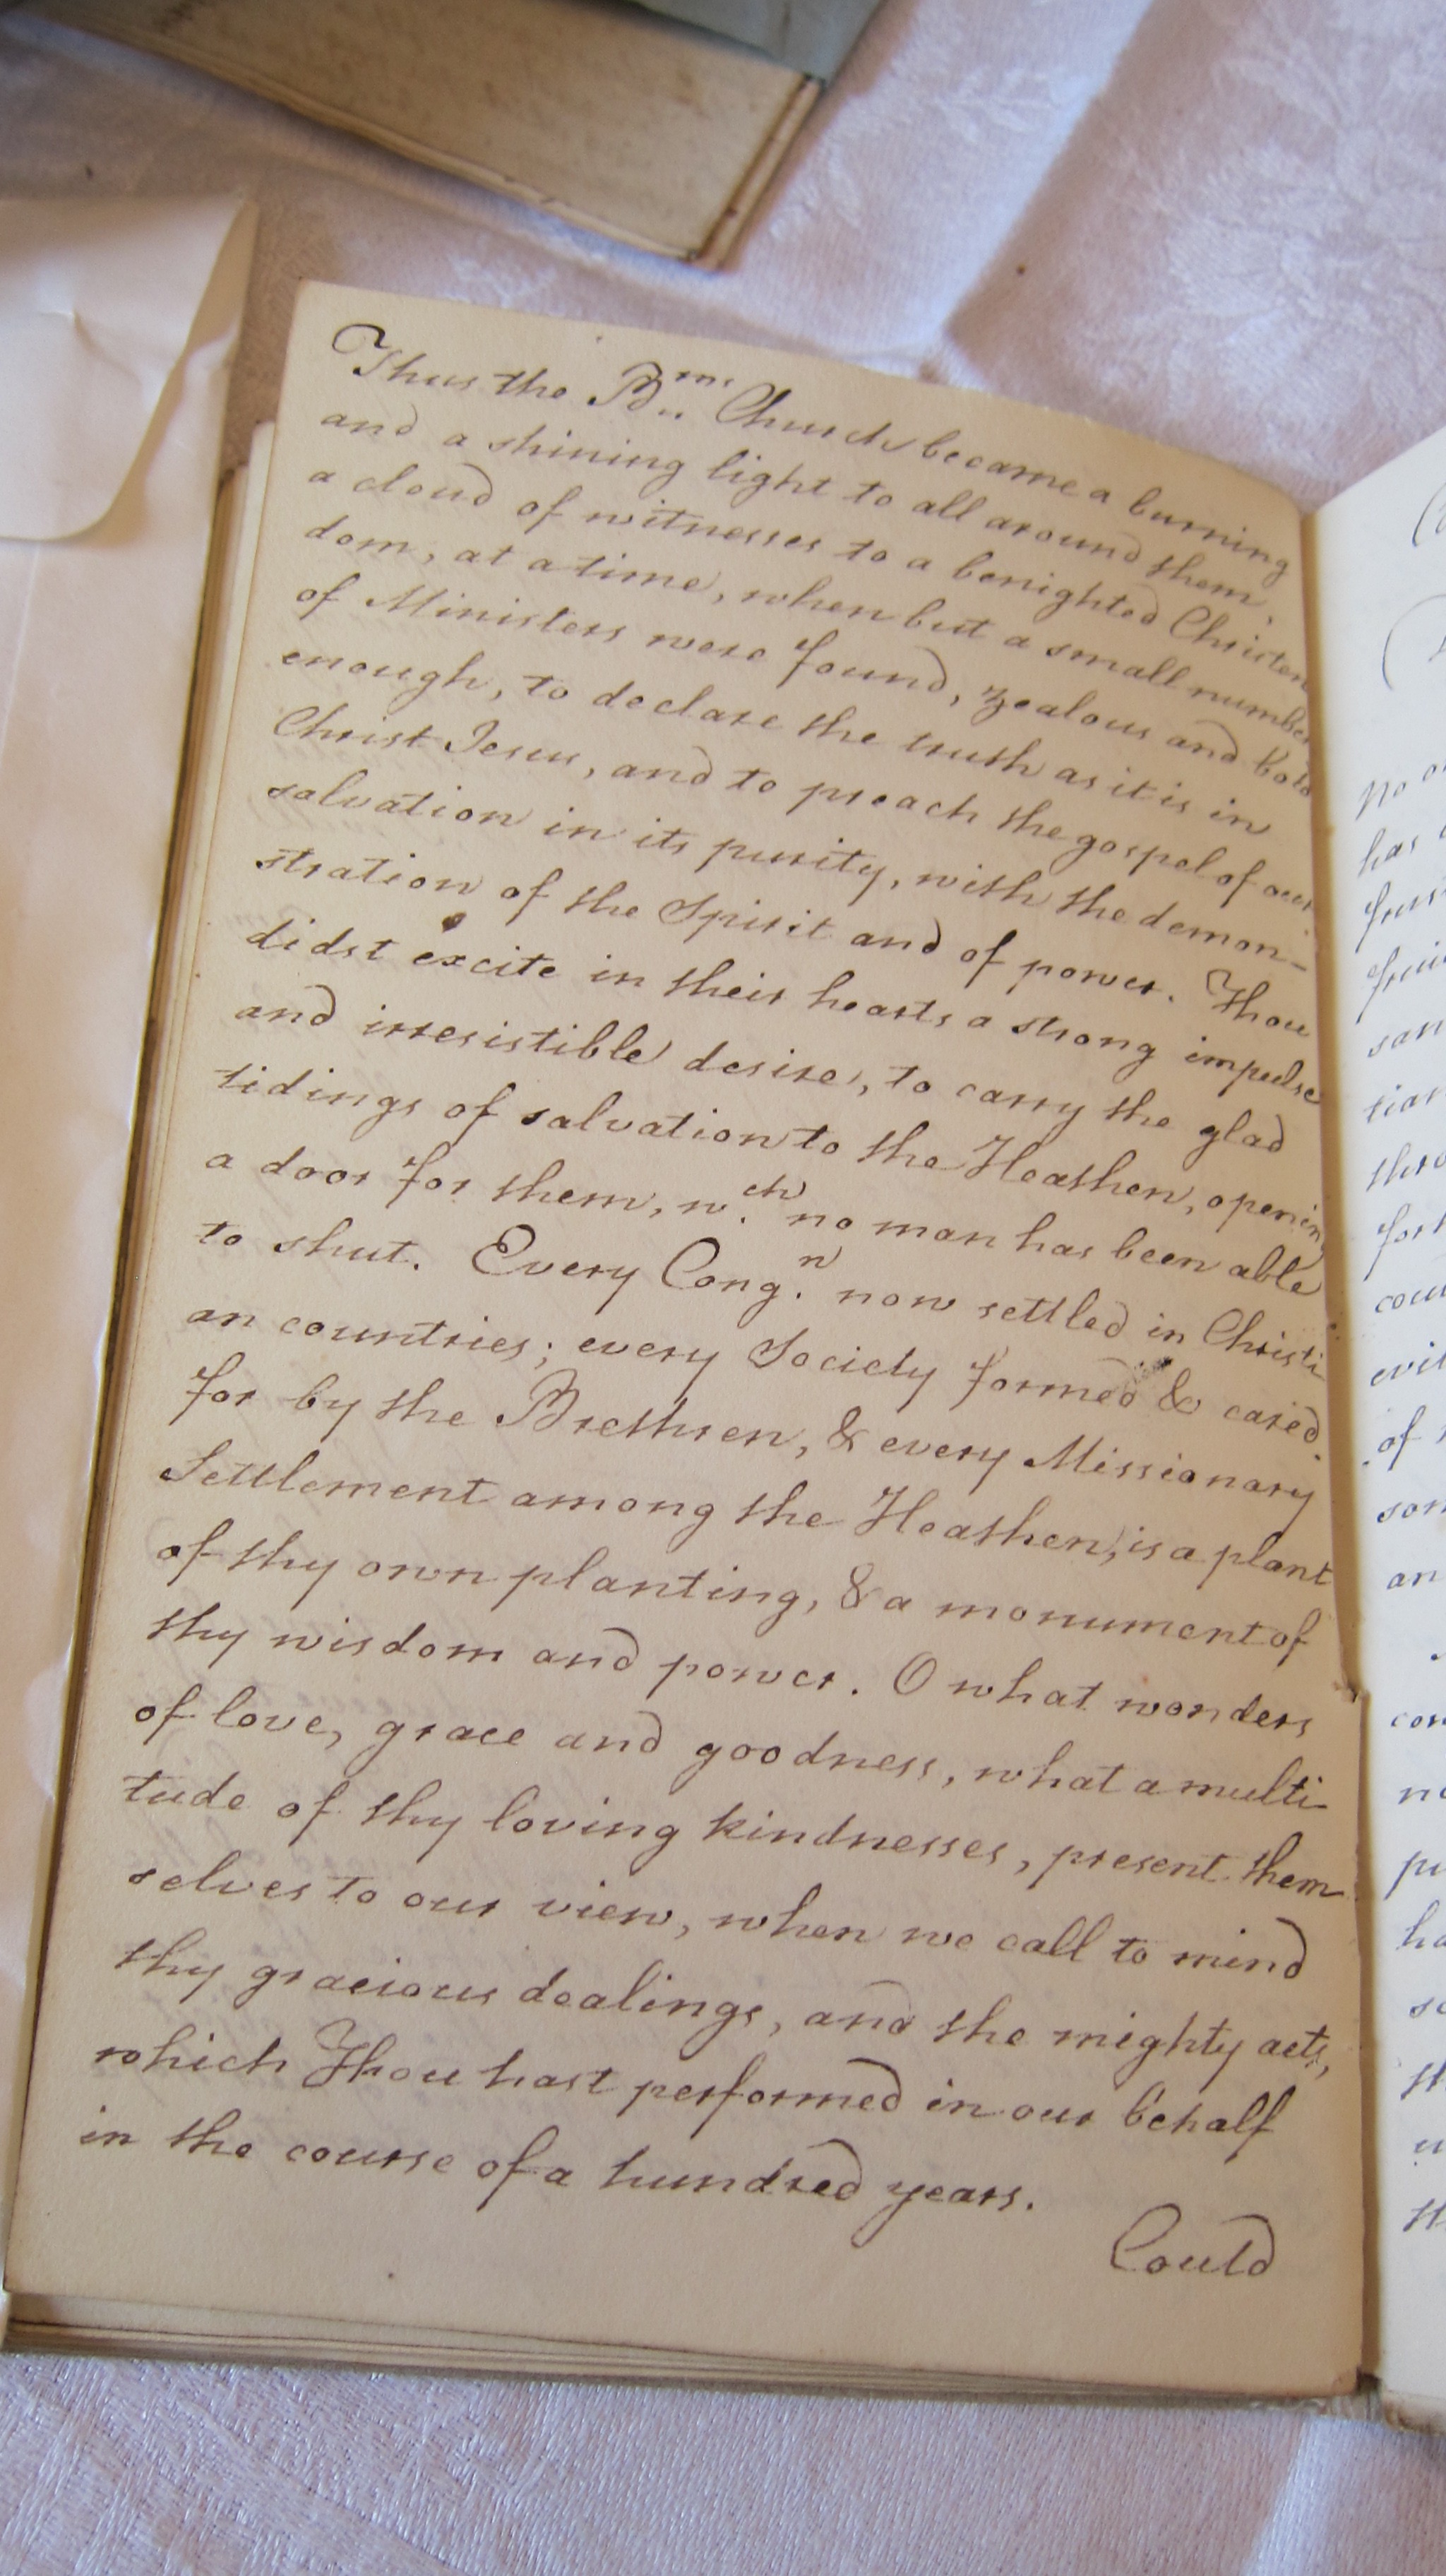 Thus the Brn. Church became a burning
and a shining light to all around them,
a cloud of witnesses to a benighted Christen
dom, at a time, when but a small number
of Ministers were found, zealous and bold
enough, to declare the truth as it is in
Christ Jesus, and to preach the gospel of our
salvation in its purity, with the demon-
stration of the Spirit and of power. Thou
didst excite in their hearts a strong impulse
and irresistible desire, to carry the glad
tidings of salvation to the Heathen, opening
a door for them, wch. no man has been able
to shut. Every Congn. now settled in Christi
an countries; every Society formed & cared
for by the Brethren, & every Missionary
Settlement among the Heathen, is a plant
of thy own planting, & a monument of
thy wisdom and power. O what wonders
of love, grace and goodness, what a multi-
tude of thy loving kindnesses, present them
selves to our view, when we call to mind
thy gracious dealings, and the mighty acts,
which Thou hast performed in our behalf
in the course of a hundred years.
Could
no
has
san
tian
for
cou
evil
of
son
an
con